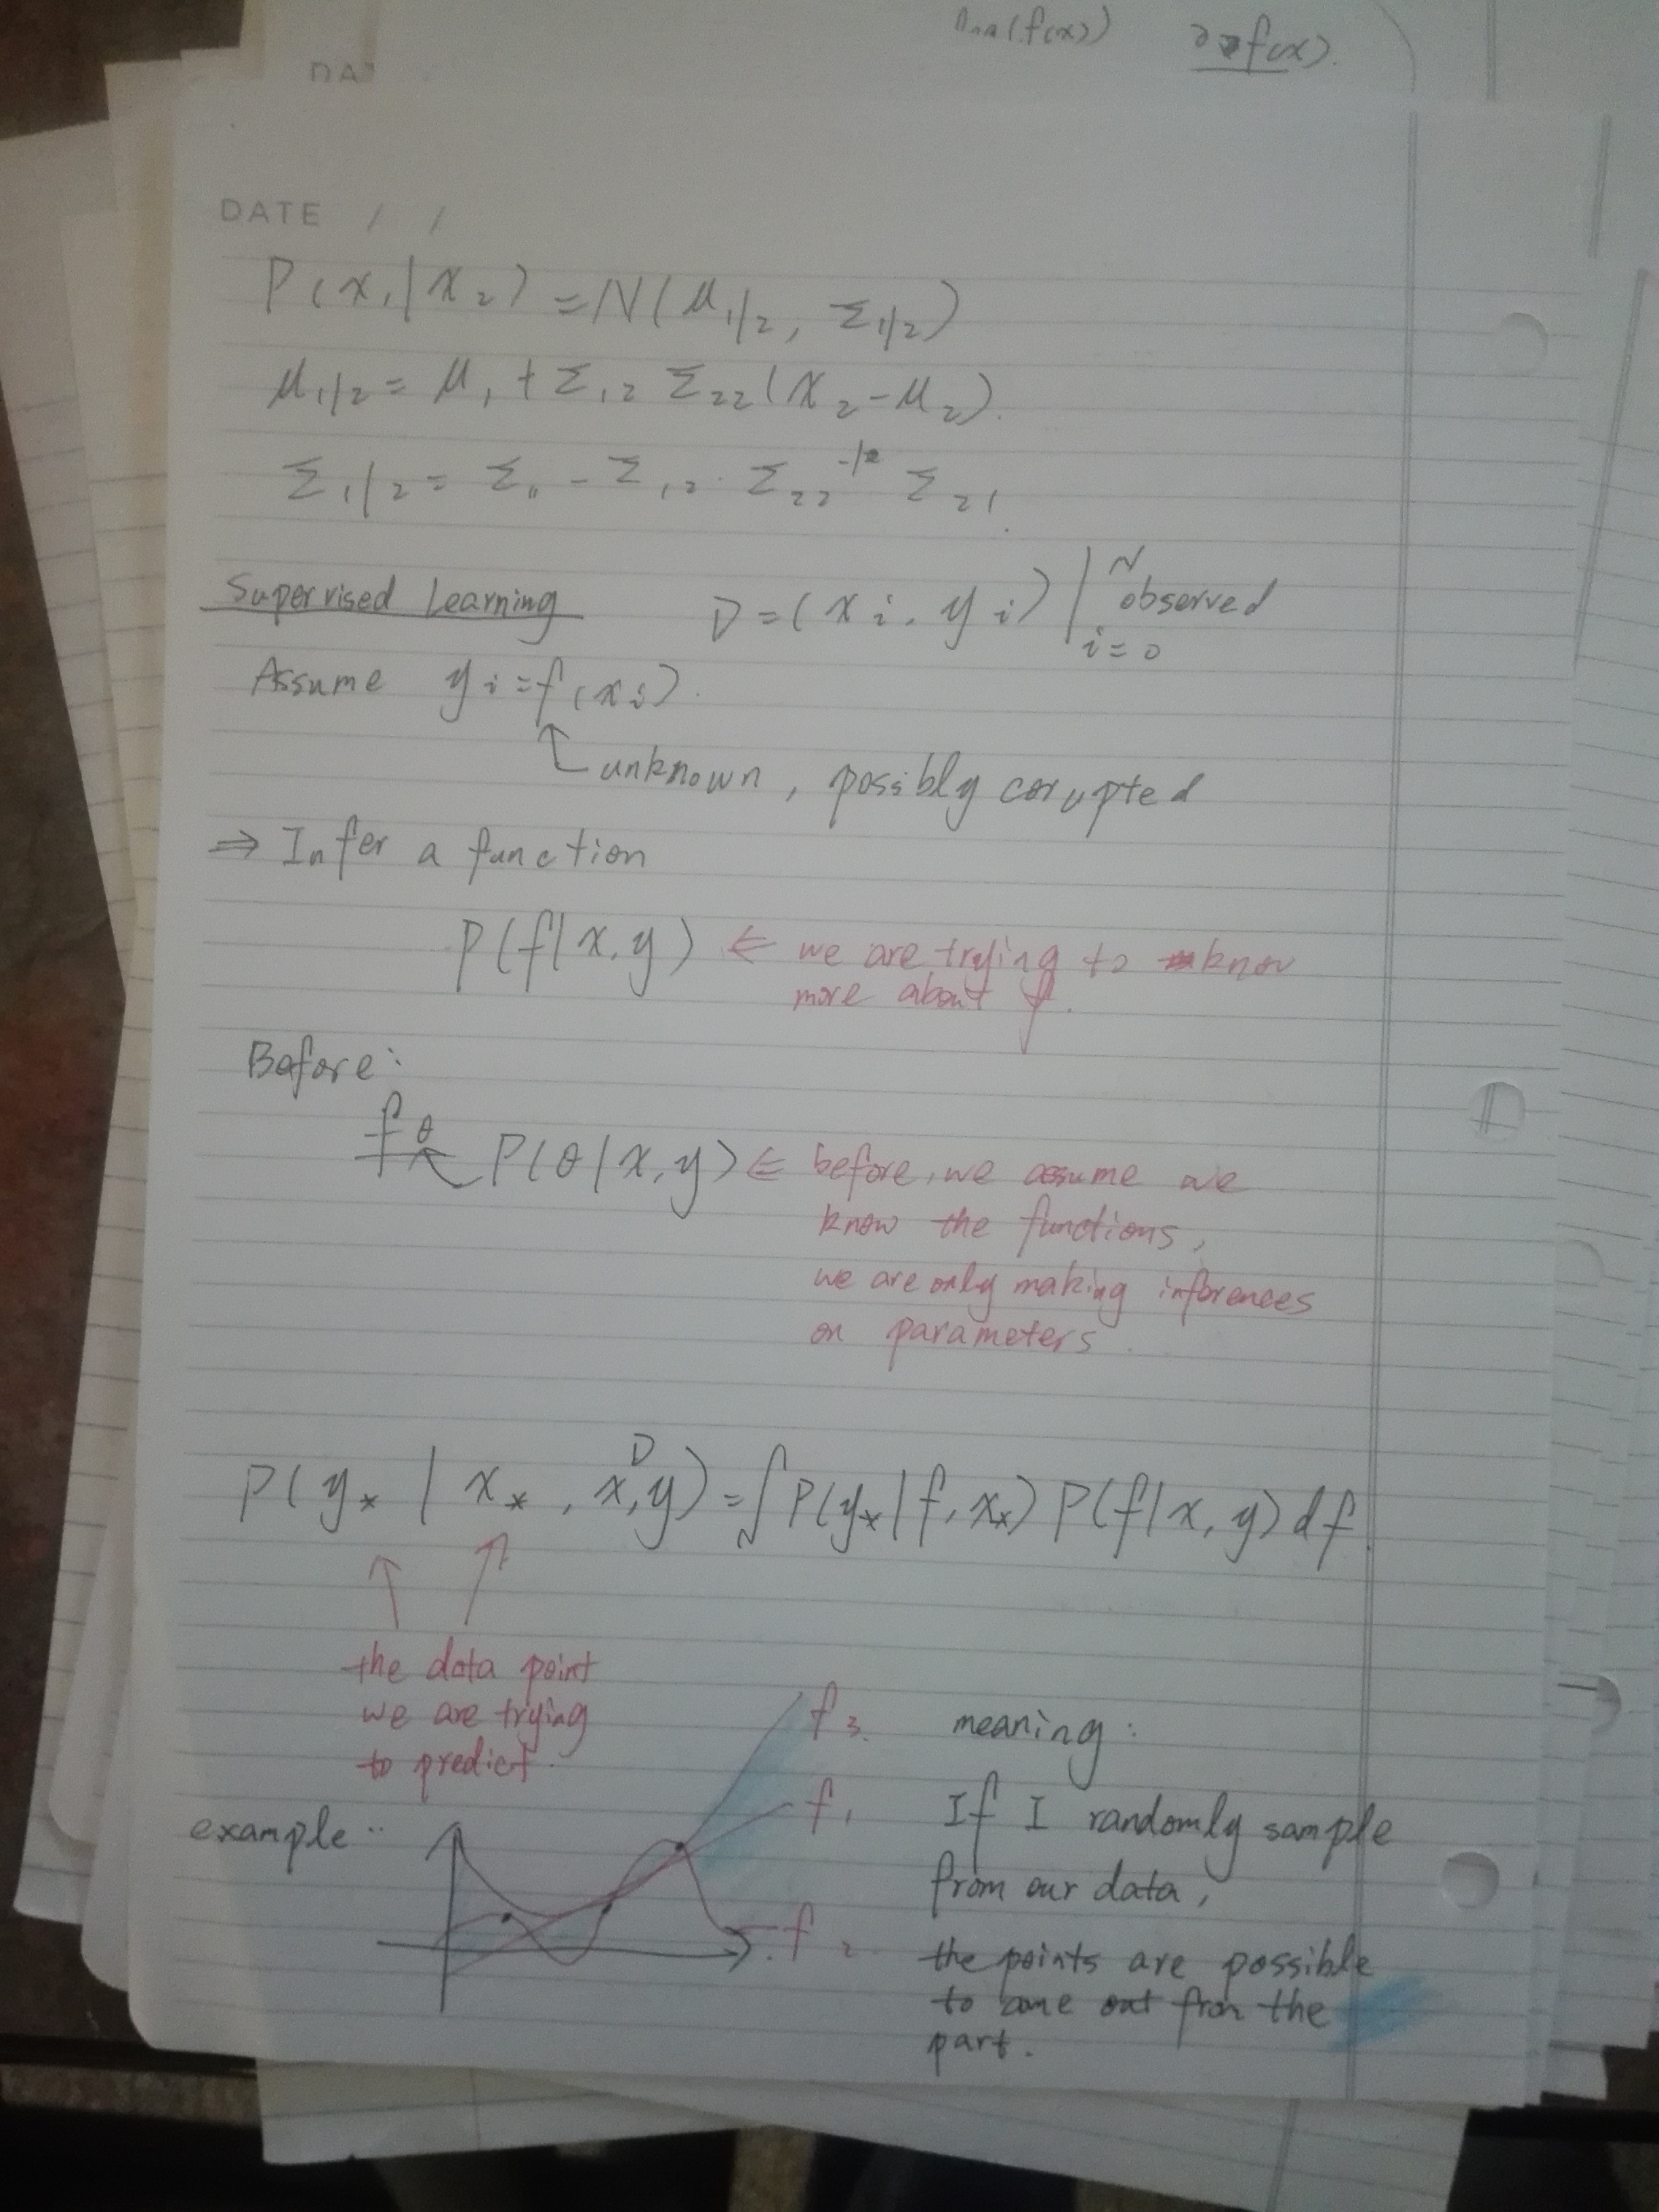 2 f(x).
DATE / /
P(x₁|x₂) = N(μ₁|₂, Σ₁|₂)
μ₁|₂ = μ₁ + Σ₁₂ Σ₂₂(x₂-μ₂).
Σ₁|₂ = Σ₁₁ - Σ₁₂ · Σ₂₂⁻¹ Σ₂₁.
Supervised Learning D = (xi, yi) | N observed i=0
Assume yi = f(xi).
unknown, possibly corupted
⇒ Infer a function
P(f|x,y) ⇐ we are trying to know
more about f.
Before:
f θ P(θ|x,y) ⇐ before, we assume we
know the functions,
we are only making inferences
on parameters.
P(y* | x*, x,y) = ∫ P(y*|f,x*) P(f|x,y) df
D
the data point
we are trying
to predict.
f₃. meaning:
example: f₁ If I randomly sample
from our data,
f₂ the points are possible
to come out from the
part.